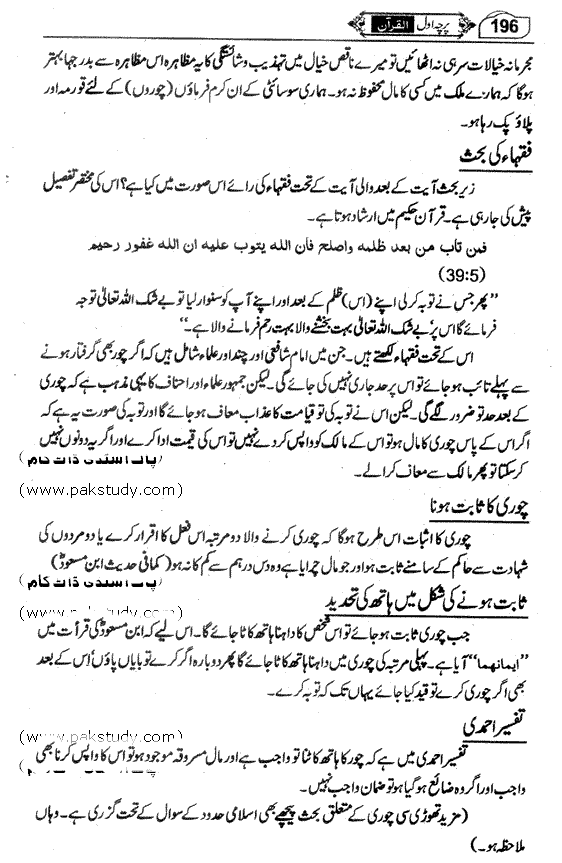 196
پرچہ اول القرآن
مجرمانہ خیالات سر ہی نہ اٹھائیں تو میرے ناقص خیال میں تہذیب و شائستگی کا یہ مظاہرہ اس مظاہرہ سے بدرجہا بہتر
ہوگا کہ ہمارے ملک میں کسی کا مال محفوظ نہ ہو۔ ہماری سوسائٹی کے ان کرم فرماؤں (چوروں) کے لئے قورمہ اور
پلاؤ پک رہا ہو۔
فقہاء کی بحث
زیر بحث آیت کے بعد والی آیت کے تحت فقہاء کی رائے اس صورت میں کیا ہے؟ اس کی مختصر تفصیل
پیش کی جا رہی ہے۔ قرآن حکیم میں ارشاد ہوتا ہے۔
فمن تاب من بعد ظلمه واصلح فان الله يتوب عليه ان الله غفور رحيم
(39:5)
”پھر جس نے توبہ کر لی اپنے (اس) ظلم کے بعد اور اپنے آپ کو سنوار لیا تو بے شک اللہ تعالیٰ توجہ
فرمائے گا اس پر بے شک اللہ تعالیٰ بہت بخشنے والا بہت رحم فرمانے والا ہے۔“
اس کے تحت فقہاء لکھتے ہیں۔ جن میں امام شافعی اور چند اور علماء شامل ہیں کہ اگر چور بھی گرفتار ہونے
سے پہلے تائب ہو جائے تو اس پر حد جاری نہیں کی جائے گی۔ لیکن جمہور علماء اور احناف کا یہی مذہب ہے کہ چوری
کے بعد حد تو ضرور لگے گی۔ لیکن اس نے توبہ کی تو قیامت کا عذاب معاف ہو جائے گا اور توبہ کی صورت یہ ہے کہ
اگر اس کے پاس چوری کا مال ہو تو اس کے مالک کو واپس کر دے نہیں تو اس کی قیمت ادا کرے اور اگر یہ دونوں نہیں
کر سکتا تو پھر مالک سے معاف کرا لے۔
(پاک اسٹڈی ڈاٹ کام)
(www.pakstudy.com)
چوری کا ثابت ہونا
چوری کا اثبات اس طرح ہوگا کہ چوری کرنے والا دو مرتبہ اس فعل کا اقرار کرے یا دو مردوں کی
شہادت سے حاکم کے سامنے ثابت ہو اور جو مال چرایا ہے وہ دس درہم سے کم کا نہ ہو (کمافی حدیث ابن مسعودؓ)
(پاک اسٹڈی ڈاٹ کام)
ثابت ہونے کی شکل میں ہاتھ کی تحدید
(www.pakstudy.com)
جب چوری ثابت ہو جائے تو اس شخص کا داہنا ہاتھ کاٹا جائے گا۔ اس لیے کہ ابن مسعودؓ کی قرآت میں
”ایمانهما“ آیا ہے۔ پہلی مرتبہ کی چوری میں داہنا ہاتھ کاٹا جائے گا پھر دوبارہ اگر کرے تو بایاں پاؤں اس کے بعد
بھی اگر چوری کرے تو قید کیا جائے یہاں تک کہ توبہ کرے۔
تفسیر احمدی
(www.pakstudy.com)
تفسیر احمدی میں ہے کہ چور کا ہاتھ کاٹنا تو واجب ہے اور مال مسروقہ موجود ہو تو اس کا واپس کرنا بھی
واجب اور اگر وہ ضائع ہو گیا ہو تو ضمان واجب نہیں۔
(مزید تھوڑی سی چوری کے متعلق بحث پیچھے بھی اسلامی حدود کے سوال کے تحت گزری ہے۔ وہاں
ملاحظہ ہو۔)